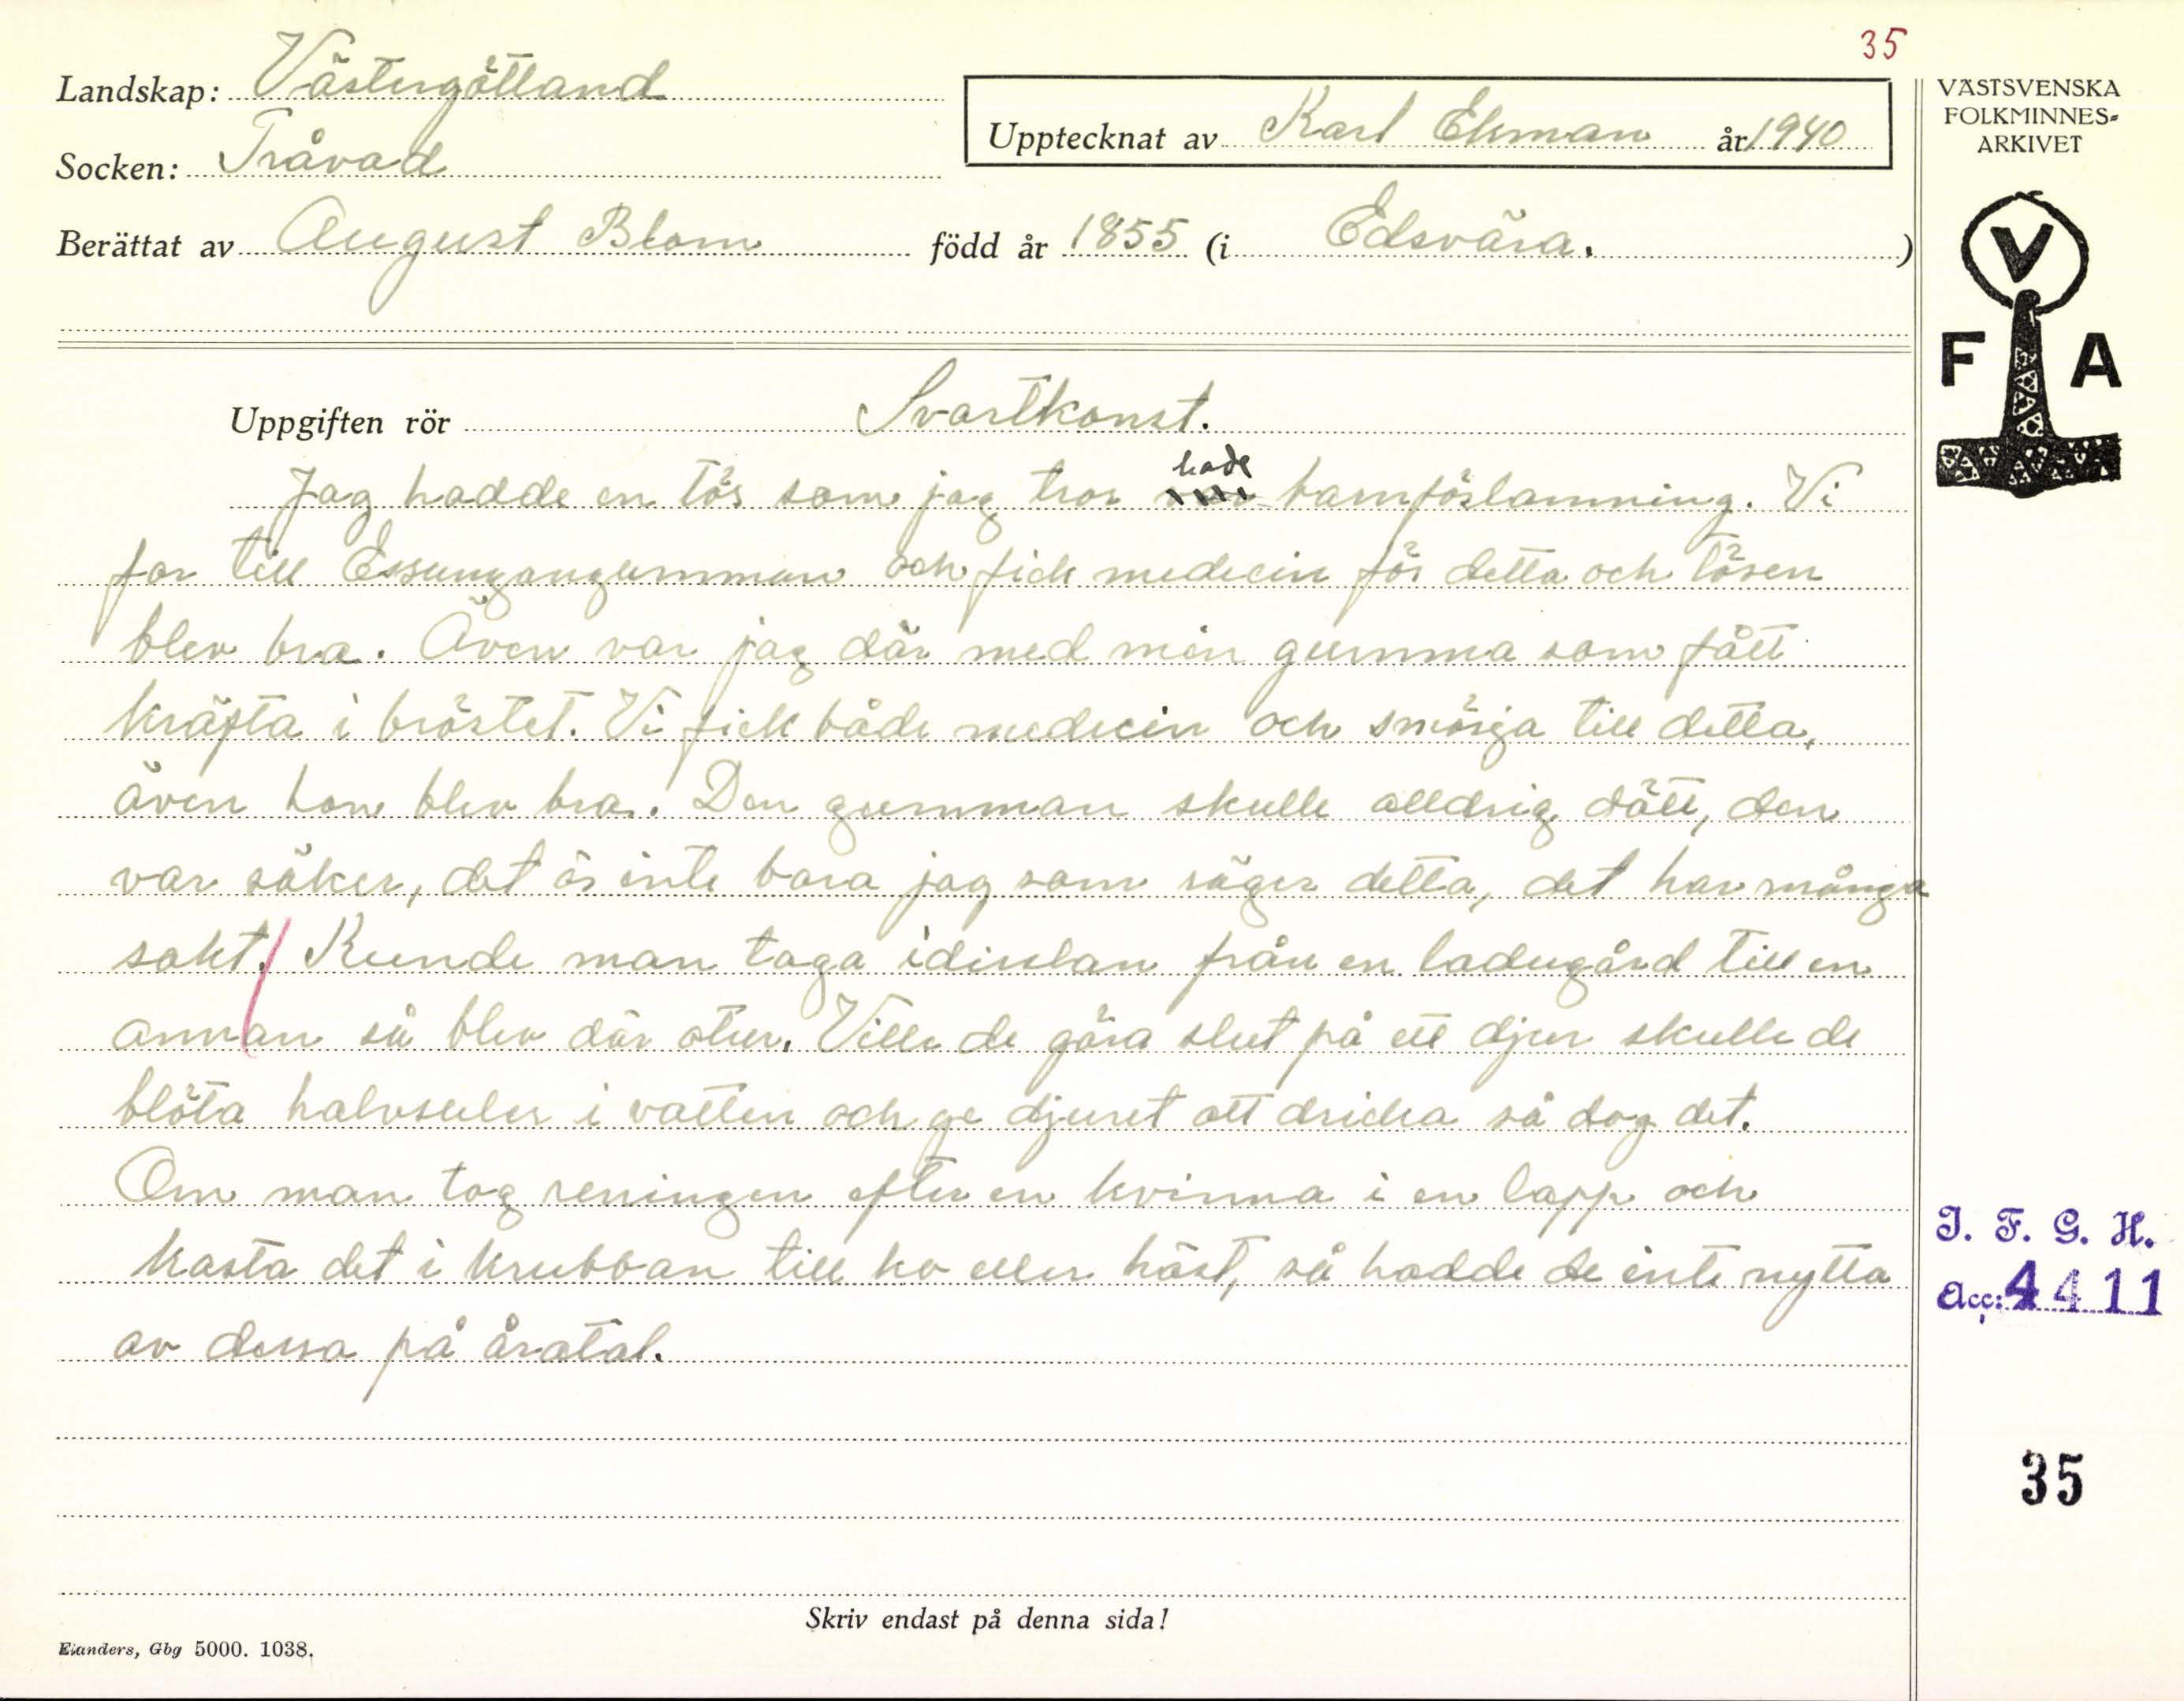 35
Landskap: Västergötland
Upptecknat av Karl Ekman år 1940
Socken: Tråvad
Berättat av August Blom född år 1855 (i Edsvära. )
VÄSTSVENSKA
FOLKMINNES-
ARKIVET
V
F A
Uppgiften rör Svartkonst.
hade
Jag hadde en tös som jag tror barnförlamning. Vi
for till Essungangumman och fick medecin för detta och tösen
blev bra. Även var jag där med min gumma som fått
kräfta i bröstet. Vi fick både medecin och smörja till detta,
även hon blev bra. Den gumman skulle alldrig dått, den
var säker, det är inte bara jag som säger detta, det har många
sakt. Kunde man taga idisslan från en ladugård till en
annan så blev där otur. Ville de göra slut på ett djur skulle de
blöta halvsulor i vatten och ge djuret att dricka så dog det.
Om man tog reningen efter en kvinna i en lapp och
kasta det i krubban till ko eller häst, så hadde de inte nytta
av dessa på åratal.
I. F. G. H.
Acc: 4411
35
Skriv endast på denna sida!
Elanders, Gbg 5000. 1038.